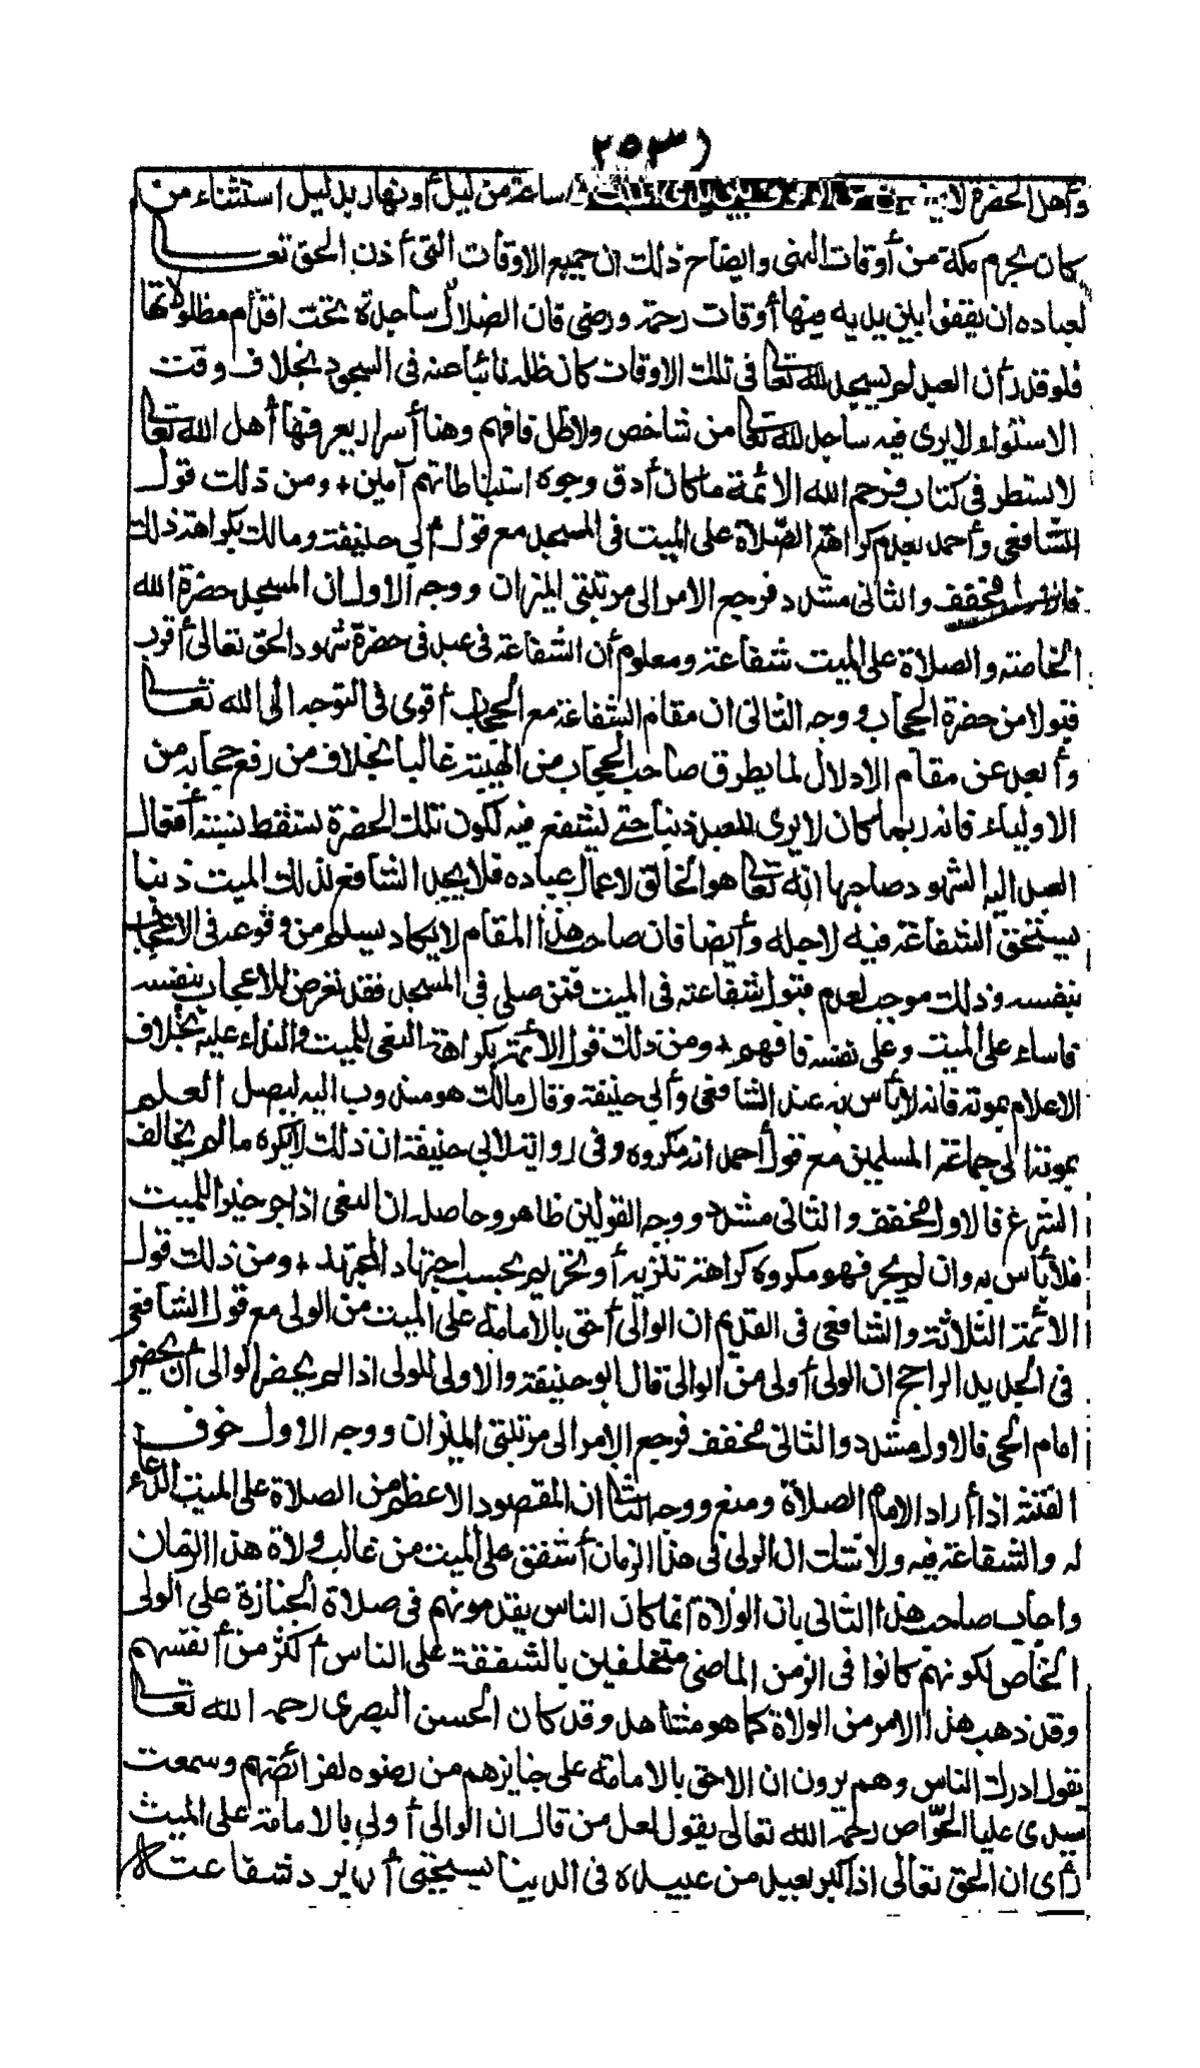 ٢٥٣
وأهل الحضرة لا يمنعون من الوقوف بين يدى الملك فى ساعة من ليل أو نهار بدليل استثناء من
كان بحرم مكة من أوقات النهى وايضاح ذلك ان جميع الاوقات التى أذن الحق تعالى
لعباده ان يقفوا بين يديه فيها أوقات رحمة ورضى فان الضلال ساجدة تحت اقدام مظلولاتها
فلو قدر أن العبد لم يسجد لله تعالى فى تلك الاوقات كان ظله نائبا عنه فى السجود بخلاف وقت
الاستواء لا يرى فيه ساجد لله تعالى من شاخص ولا ظل فافهم وهنا أسرار يعرفها أهل الله تعالى
لا تسطر فى كتاب فرحم الله الائمة ما كان أدق وجوه استنباطاتهم آمين + ومن ذلك قول
الشافعى وأحمد بعدم كراهة الصلاة على الميت فى المسجد مع قول أبى حنيفة ومالك بكراهة ذلك
فالاول مخفف والثانى مشدد فرجع الامر الى مرتبتى الميزان ووجه الاول ان المسجد حضرة الله
الخاصة والصلاة على الميت شفاعة ومعلوم أن الشفاعة فى عبد فى حضرة شهود الحق تعالى أقرب
قبولا من حضرة الحجاب ووجه الثانى ان مقام الشفاعة مع الحجاب أقوى فى التوجه الى الله تعالى
وأبعد عن مقام الادلال لما يطرق صاحب الحجاب من الهيبة غالبا بخلاف من رفع حجابه من
الاولياء فانه ربما كان لا يرى للعبد ذنبا حتى يشفع فيه لكون تلك الحضرة تسقط نسبة أفعال
العبد اليه لشهود صاحبها انه تعالى هو الخالق لاعمال عباده فلا يجد الشافع لذلك الميت ذنبا
يستحق الشفاعة فيه لاجله وأيضا فان صاحب هذا المقام لا يكاد يسلم من وقوعه فى الاعجاب
بنفسه وذلك موجب لعدم قبول شفاعته فى الميت فمن صلى فى المسجد فقد تعرض للاعجاب بنفسه
فاساء على الميت وعلى نفسه فافهم + ومن ذلك قول الأئمة بكراهة النعى للميت والنداء عليه بخلاف
الاعلام بموته فانه لا بأس به عند الشافعى وأبى حنيفة وقال مالك هو مندوب اليه ليصل العلم
بموته الى جماعة المسلمين مع قول أحمد انه مكروه وفى رواية لابى حنيفة ان ذلك لا يكره ما لم يخالف
الشرع فالاول مخفف والثانى مشدد ووجه القولين ظاهر وحاصله ان النعى اذا جر خيرا للميت
فلا بأس به وان لم يجر فهو مكروه كراهة تنزيه أو تحريم بحسب اجتهاد المجتهد + ومن ذلك قول
الائمة الثلاثة والشافعى فى القديم ان الوالى أحق بالامامة على الميت من الولى مع قول الشافعى
فى الجديد الراجح ان الولى أولى من الوالى قال ابو حنيفة والاولى للولى اذا لم يحضر الوالى أن يحضر
امام الحى فالاول مشدد والثانى مخفف فرجع الامر الى مرتبتى الميزان ووجه الاول خوف
الفتنة اذا أراد الامام الصلاة ومنع ووجه الثانى ان المقصود الاعظم من الصلاة على الميت الدعاء
له والشفاعة فيه ولا شك ان الولى فى هذا الزمان أشفق على الميت من غالب ولاة هذا الزمان
واجاب صاحب هذا الثانى بان الولاة انما كان الناس يقدمونهم فى صلاة الجنازة على الولى
الخاص لكونهم كانوا فى الزمن الماضى متخلقين بالشفقة على الناس أكثر من أنفسهم
وقد ذهب هذا الامر من الولاة كما هو مشاهد وقد كان الحسن البصرى رحمه الله تعالى
يقول ادركت الناس وهم يرون ان الاحق بالامامة على جنايزهم من رضوه لفرائضهم وسمعت
سيدى عليا الخوّاص رحمه الله تعالى يقول لعل من قال ان الوالى أولى بالامامة على الميت
رأى ان الحق تعالى اذا كبر بعبد من عبيده فى الدنيا يستحيى أن يرد شفاعته